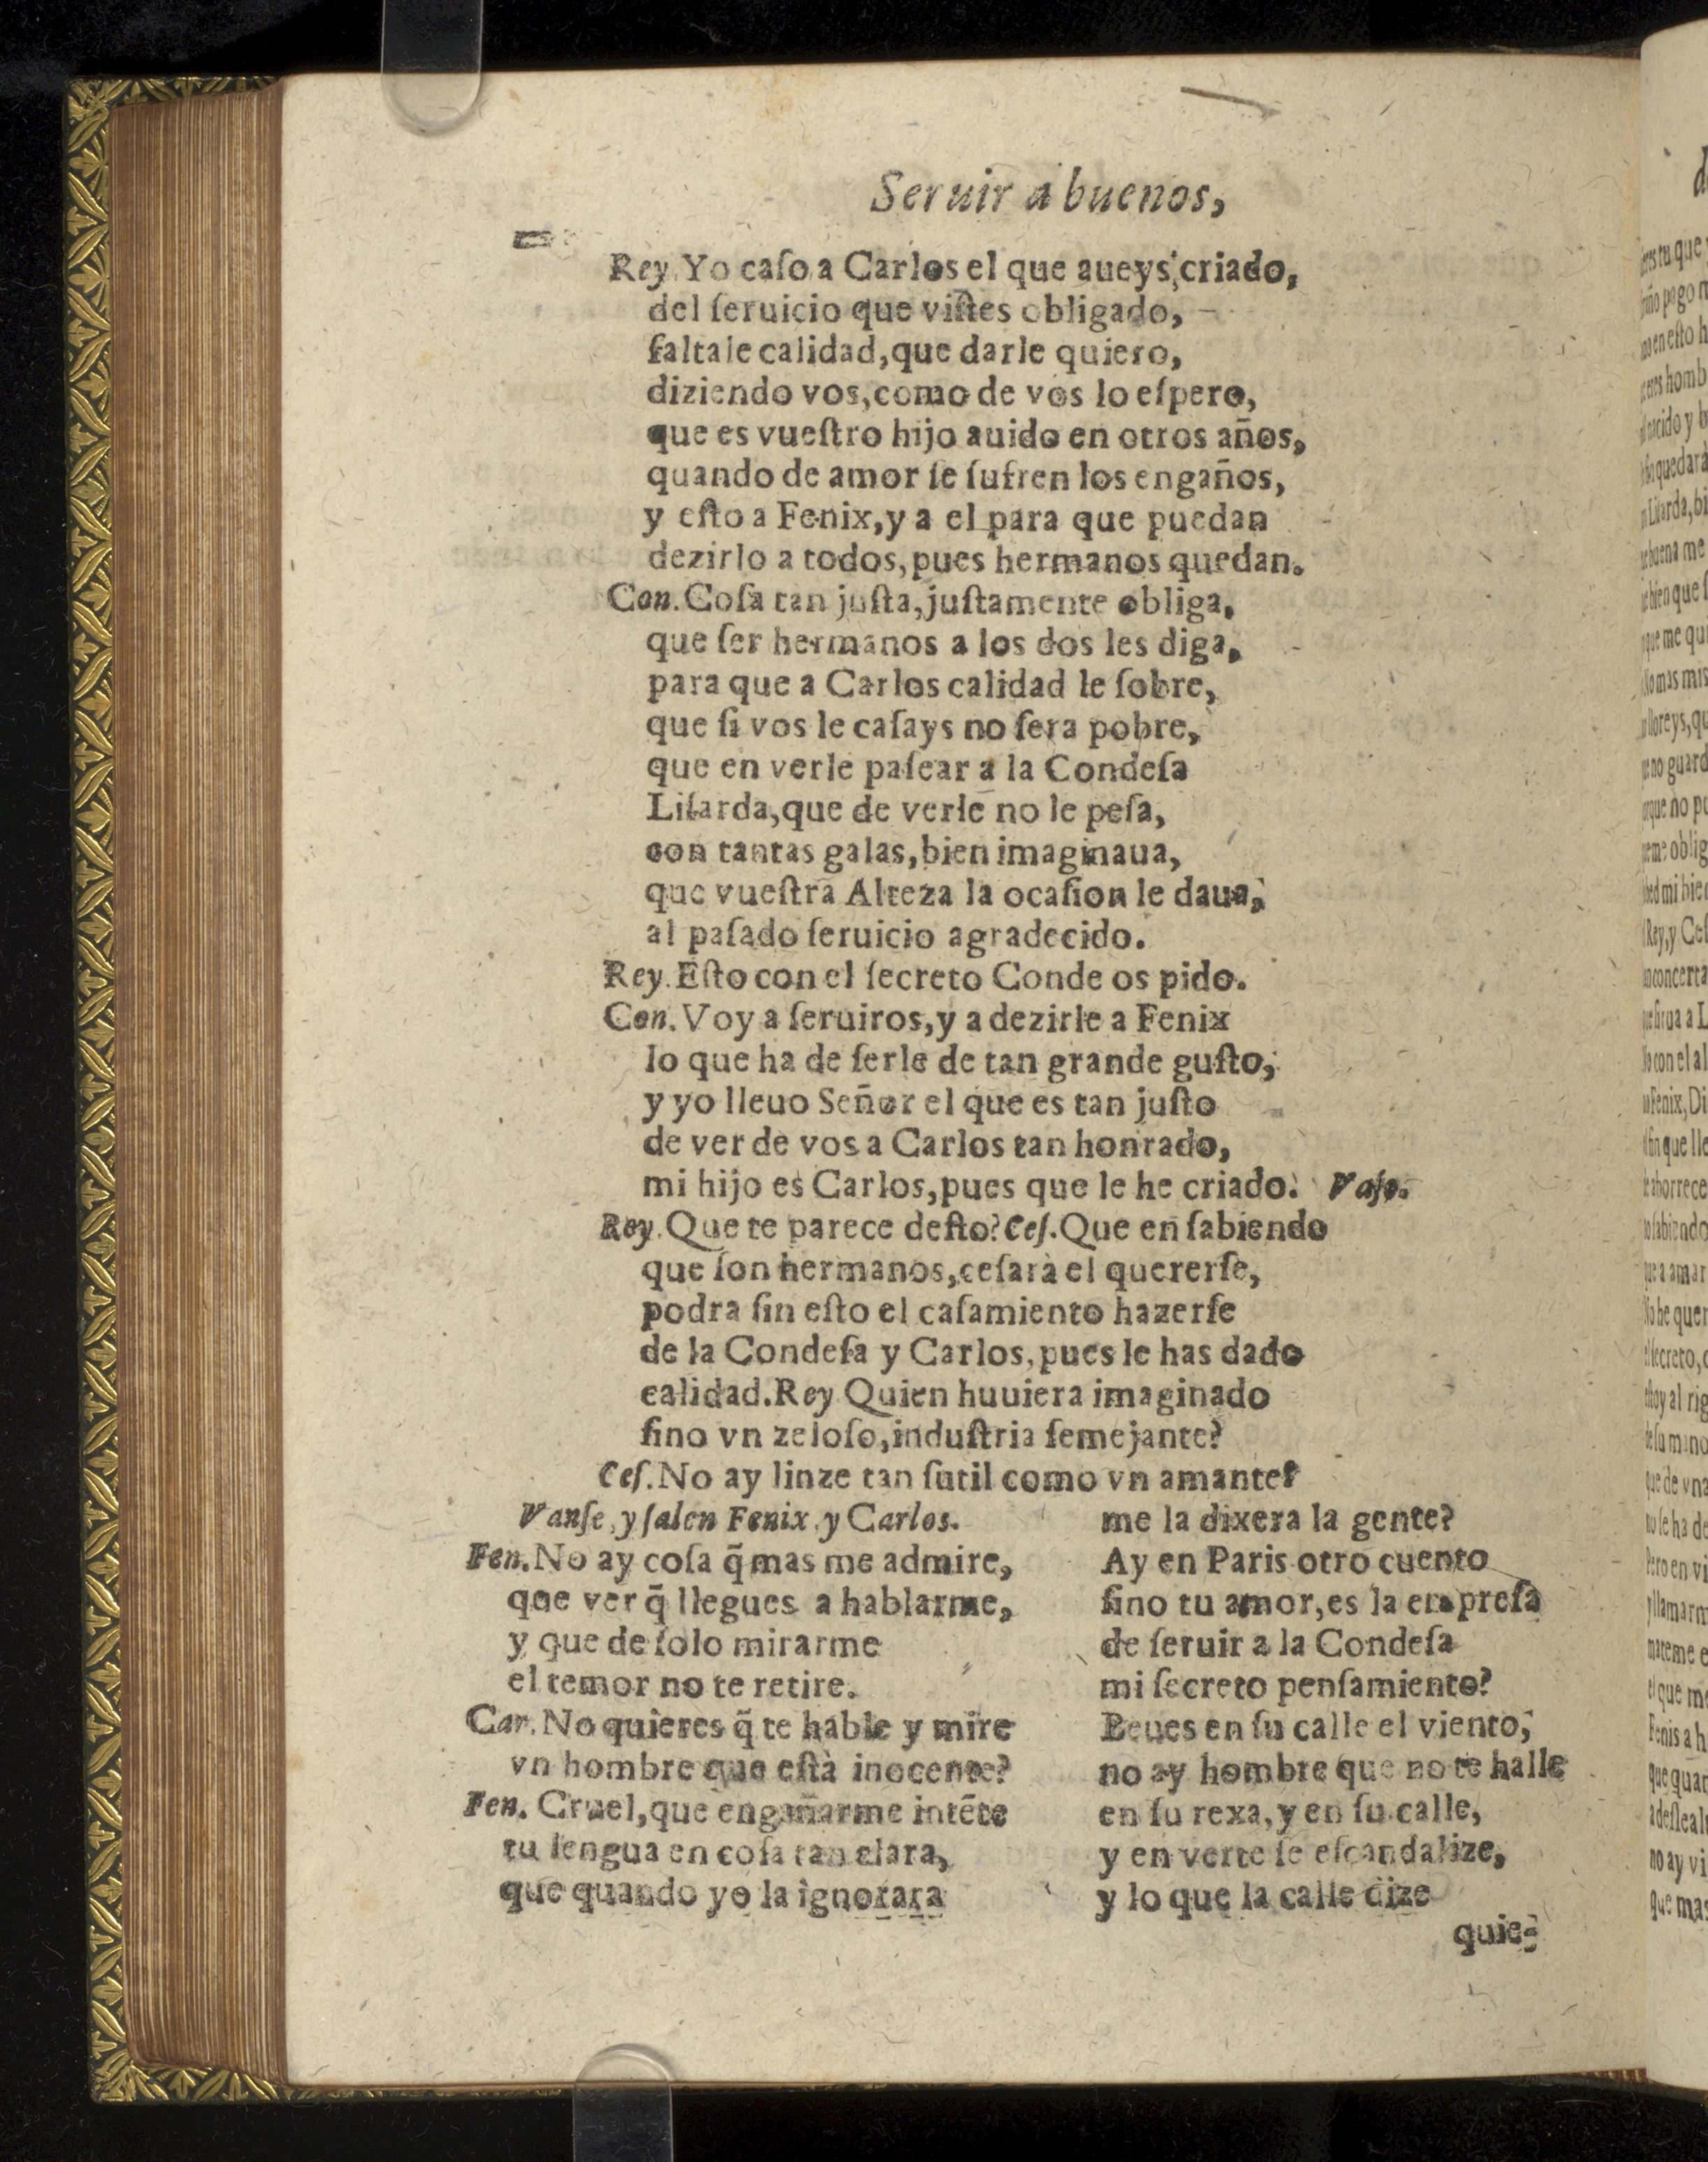 Seruir a buenos,
Rey. Yo caſo a Carlos el que aueys criado,
del ſeruicio que viſtes obligado,
faltale calidad, que darle quiero,
diziendo vos, como de vos lo eſpero,
que es vueſtro hijo auido en otros años,
quando de amor ſe ſufren los engaños,
y eſto a Fenix, y a el para que puedan
dezirlo a todos, pues hermanos quedan.
Con. Coſa tan juſta, juſtamente obliga,
que ſer hermanos a los dos les diga,
para que a Carlos calidad le ſobre,
que ſi vos le caſays no ſera pobre,
que en verle paſear a la Condeſa
Liſarda, que de verle no le peſa,
con tantas galas, bien imaginaua,
que vueſtra Alteza la ocaſion le daua,
al paſado ſeruicio agradecido.
Rey. Eſto con el ſecreto Conde os pido.
Con. Voy a ſeruiros, y a dezirle a Fenix
lo que ha de ſerle de tan grande guſto,
y yo lleuo Señor el que es tan juſto
de ver de vos a Carlos tan honrado,
mi hijo es Carlos, pues que le he criado. Vaſe.
Rey. Que te parece deſto? Ceſ. Que en ſabiendo
que ſon hermanos, ceſarà el quererſe,
podra ſin eſto el caſamiento hazerſe
de la Condeſa y Carlos, pues le has dado
calidad. Rey Quien huuiera imaginado
ſino vn zeloſo, induſtria ſemejante?
Ceſ. No ay linze tan ſutil como vn amante?
Vanſe, y ſalen Fenix, y Carlos.
Fen. No ay coſa q̃ mas me admire,
que ver q̃ llegues a hablarme,
y que de ſolo mirarme
el temor no te retire.
Car. No quieres q̃ te hable y mire
vn hombre que eſtà inocente?
Fen. Cruel, que engañarme intẽte
tu lengua en coſa tan clara,
que quando yo la ignorara
me la dixera la gente?
Ay en Paris otro cuento
ſino tu amor, es la empreſa
de ſeruir a la Condeſa
mi ſecreto penſamiento?
Beues en ſu calle el viento,
no ay hombre que no te halle
en ſu rexa, y en ſu calle,
y en verte ſe eſcandalize,
y lo que la calle dize
quie-